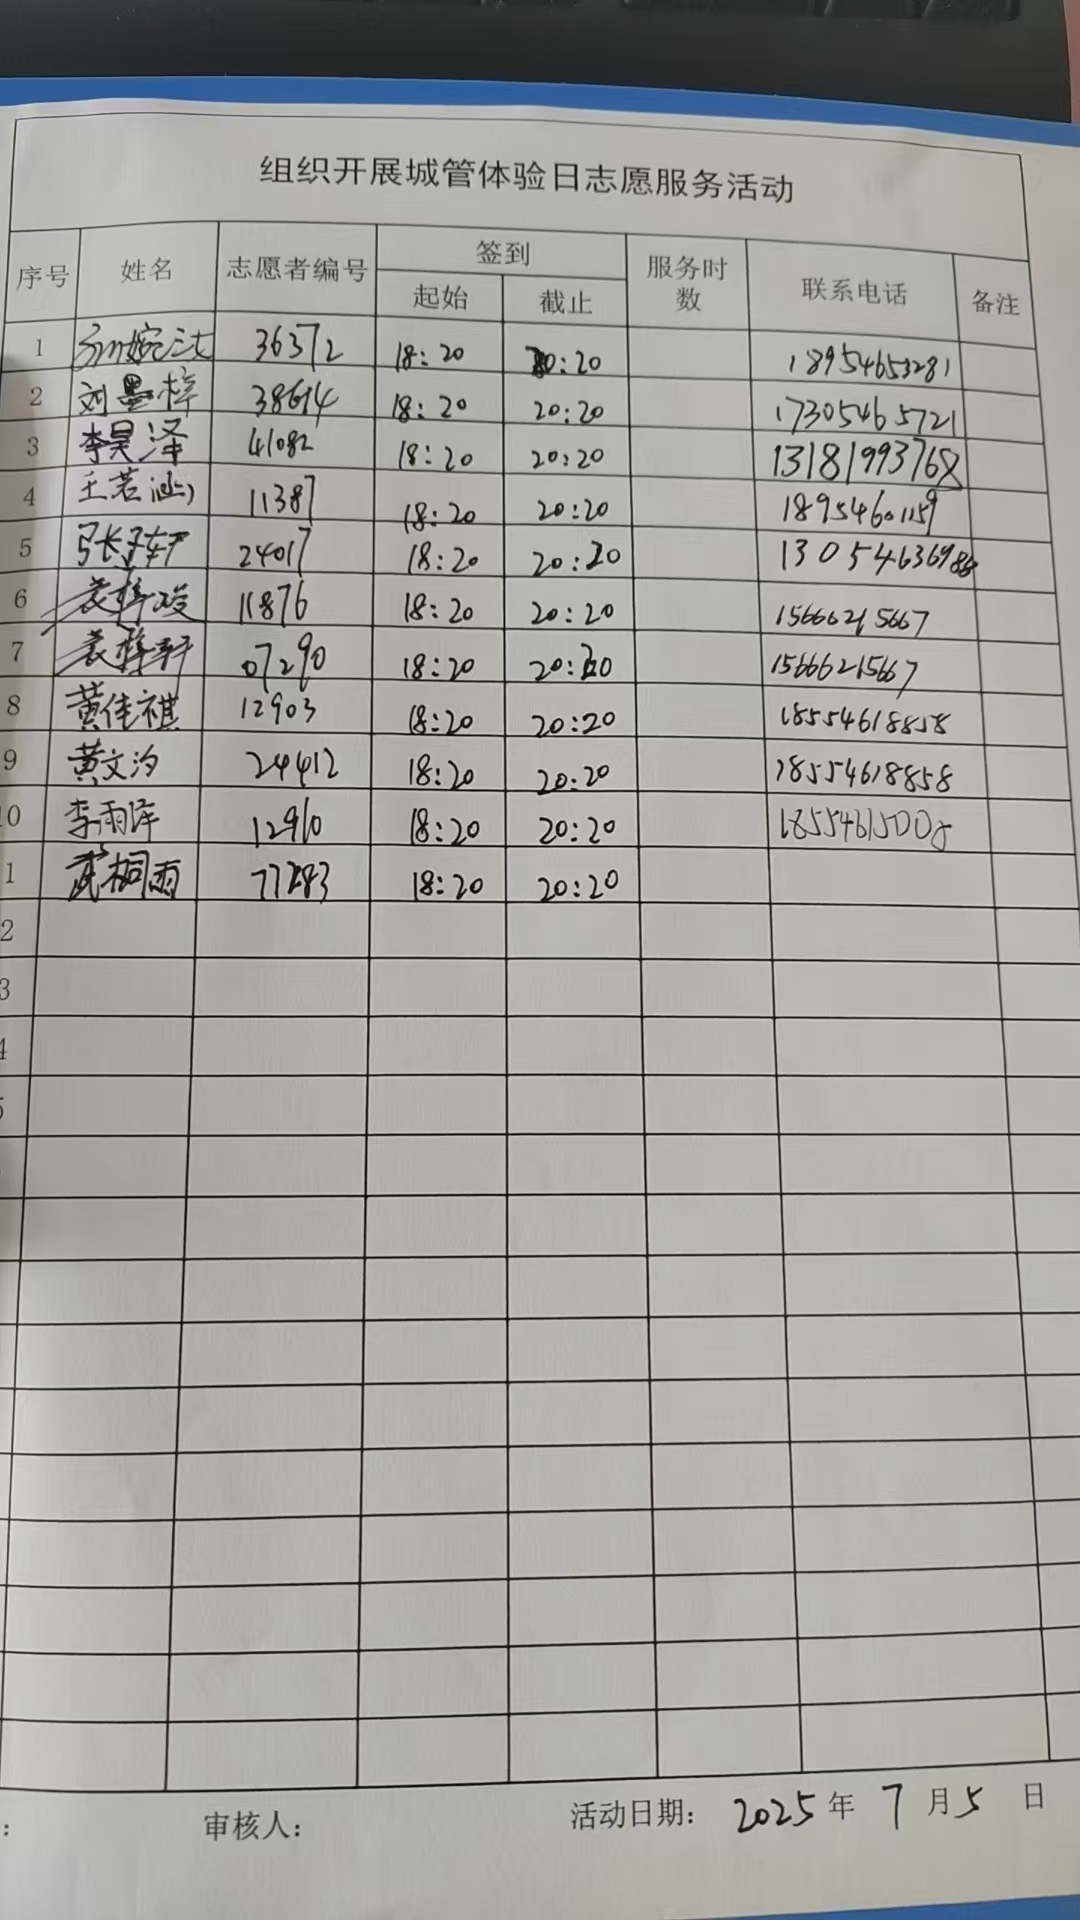 组织开展城管体验日志愿服务活动
序号 姓名 志愿者编号 签到 服务时数 联系电话 备注
起始 截止
1 36372 18:20 20:20 18954653281
2 刘墨梓 38614 18:20 20:20 17305465721
3 李昊泽 41082 18:20 20:20 13181993768
4 王若涵 11387 18:20 20:20 18954601159
5 张子轩 24017 18:20 20:20
6 袁梓 11876 18:20 20:20 15666215667
7 袁梓轩 07290 18:20 20:20 15666215667
8 黄佳祺 12903 18:20 20:20 18554618858
9 黄文汐 24412 18:20 20:20 18554618858
10 李雨泽 12910 18:20 20:20 18554615008
1 武桐雨 77283 18:20 20:20
2
3
4
5
: 审核人: 活动日期: 2025年 7月5日